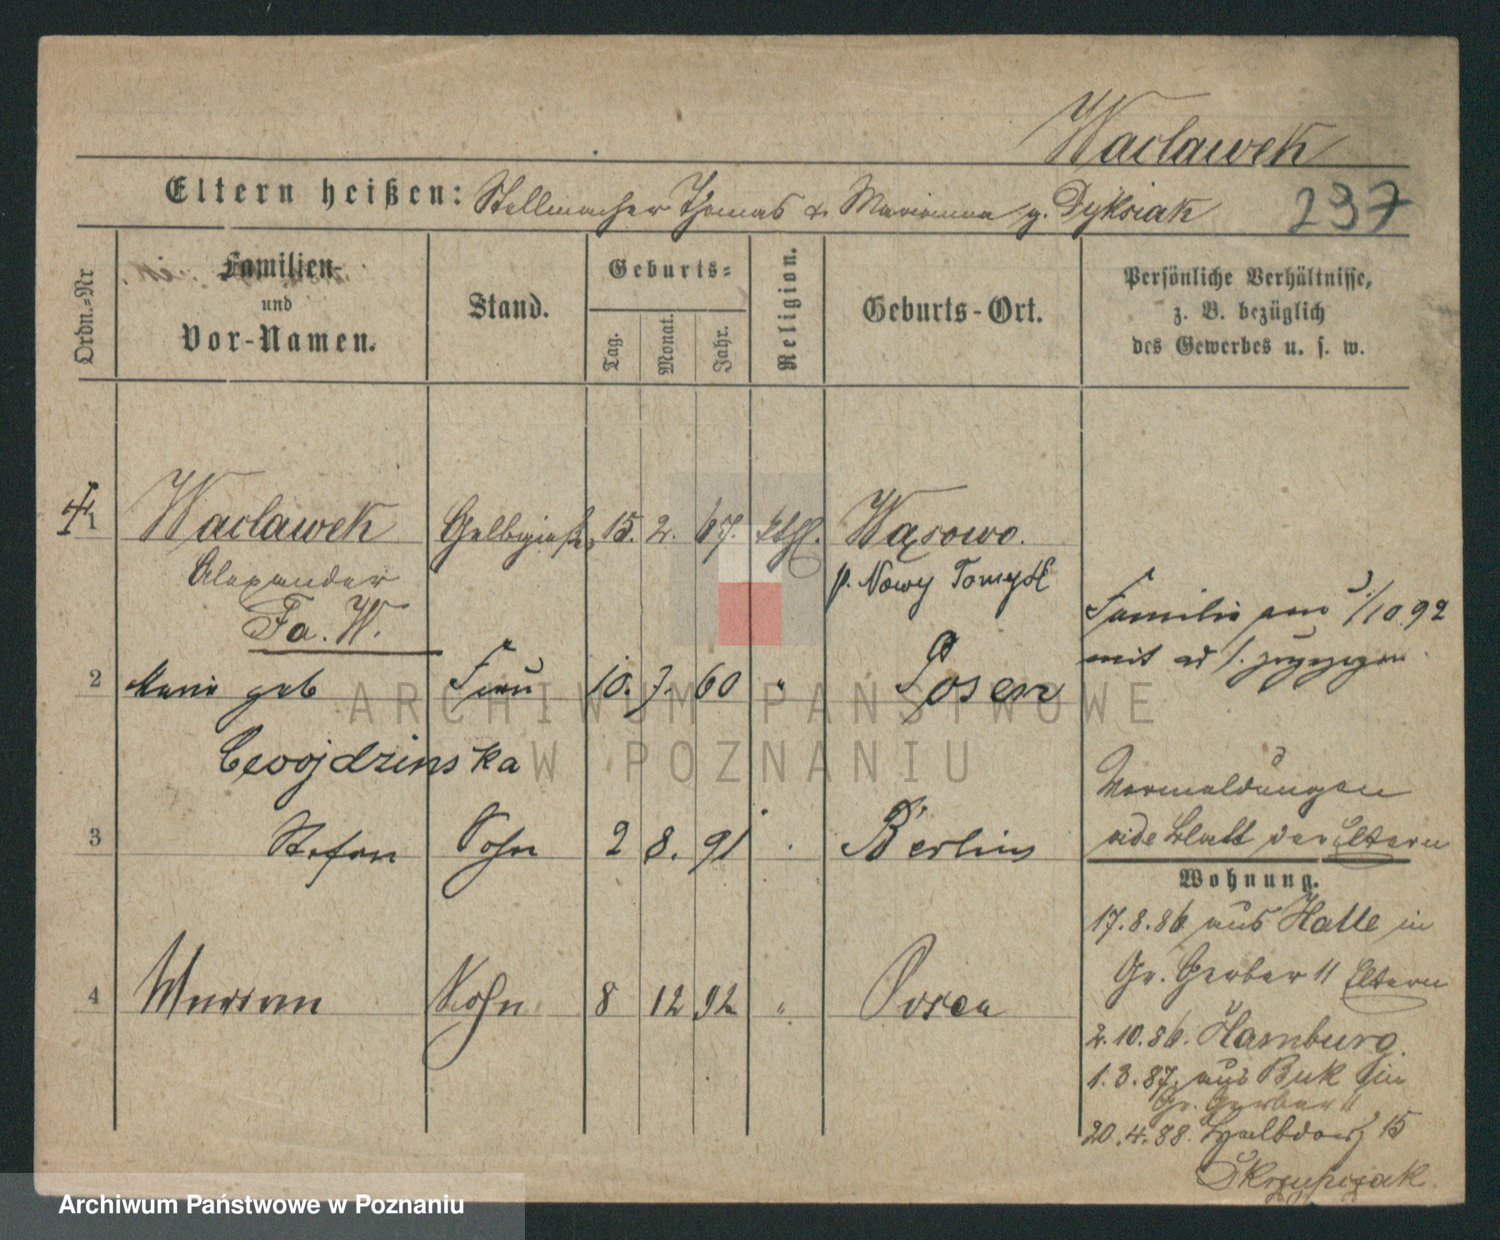 Waclawek
Eltern heißen: Stellmacher Thomas & Marianna g. Dyksiak 237
Ordn.=Nr
Familien-
und
Vor-Namen.
Stand.
Geburts=
Tag.
Monat.
Jahr.
Religion.
Geburts-Ort.
Persönliche Verhältnisse,
z. B. bezüglich
des Gewerbes u. s. w.
1 Waclawek Gelbgießer 15. 2. 67. kthl. Wąsowo.
Alexander
Fa. W.
p. Nowy Tomyśl
Familie am 1/10 92
mit ad 1. zugezogen
2 Marie geb Frau 10. 7. 60 " Posen
Cwojdzinska
3 Stefan Sohn 2 8. 91 Berlin
Vermeldungen
vide Blatt der Eltern
Wohnung.
17.8.86 aus Halle in
Gr. Gerber 11 Eltern
4 Maryan Sohn 8 12 92 " Posen
2.10.86. Hamburg.
1.3.87. aus Buk in
Gr. Gerber 11
20.4.88. Halbdorf 15
Skrzypczak.
ARCHIWUM PAŃSTWOWE
W POZNANIU
Archiwum Państwowe w Poznaniu